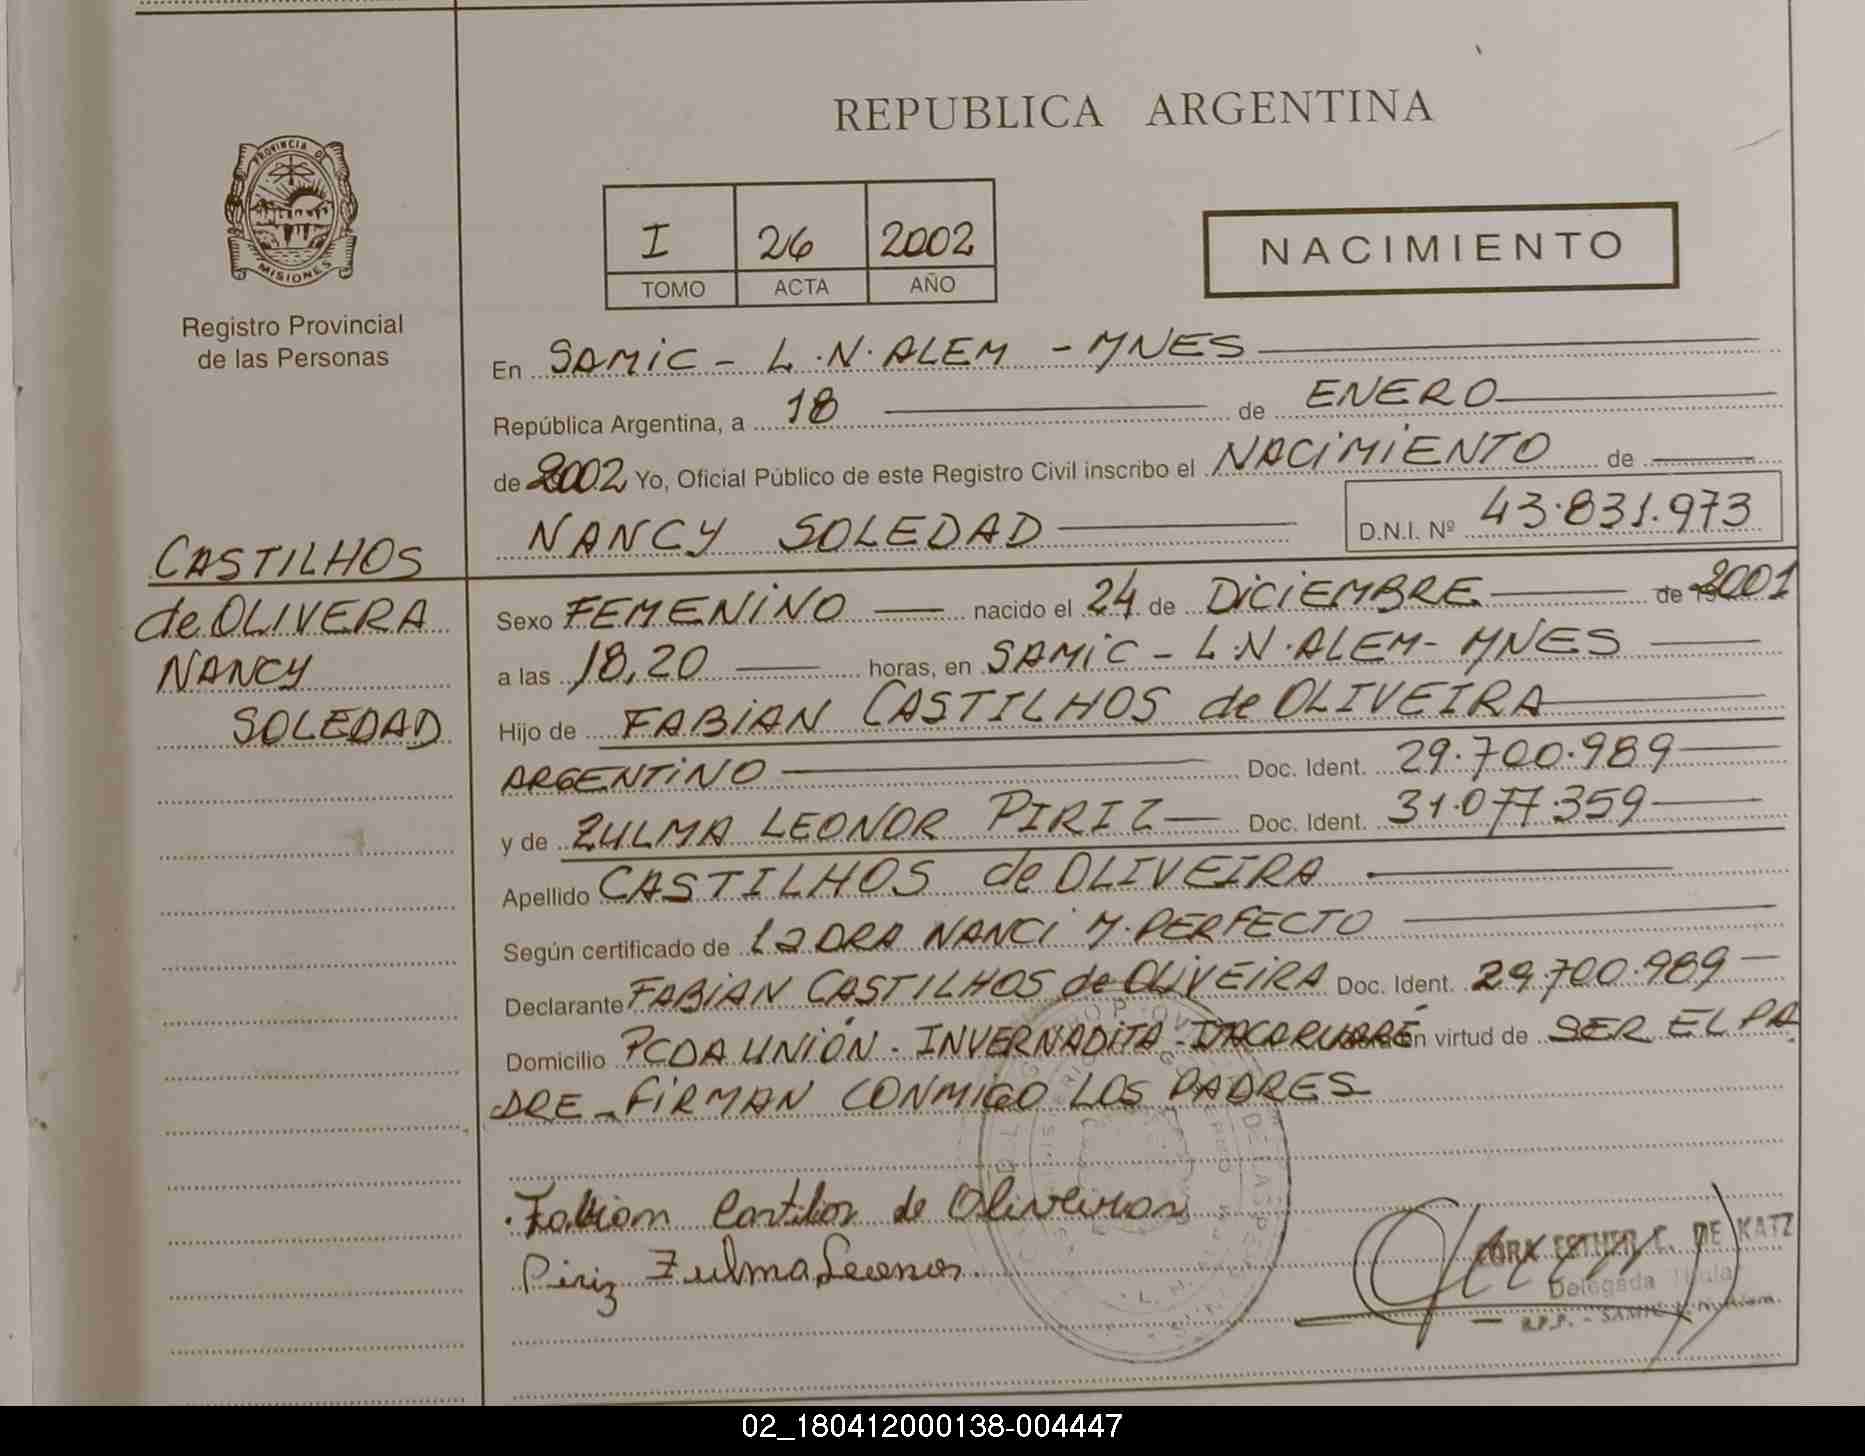 REPUBLICA ARGENTINA
PROVINCIA DE
MISIONES
Registro Provincial
de las Personas
I 26 2002
TOMO ACTA AÑO
NACIMIENTO
En SAMIC - L.N. ALEM - MNES
República Argentina, a 18 de ENERO
de 2002 Yo, Oficial Público de este Registro Civil inscribo el NACIMIENTO de
NANCY SOLEDAD D.N.I. Nº 43.831.973
CASTILHOS
de OLIVERA
NANCY
SOLEDAD
Sexo FEMENINO nacido el 24 de DICIEMBRE de 2001
a las 18,20 horas, en SAMIC - L.N. ALEM - MNES
Hijo de FABIAN CASTILHOS de OLIVEIRA
ARGENTINO Doc. Ident. 29.700.989
y de ZULMA LEONOR PIRIZ Doc. Ident. 31.077.359
Apellido CASTILHOS de OLIVEIRA
Según certificado de La DRA NANCI M. PERFECTO
Declarante FABIAN CASTILHOS de OLIVEIRA Doc. Ident. 29.700.989
Domicilio PCDA UNIÓN - INVERNADITA - ITACARUARÉ en virtud de SER EL PA
DRE - FIRMAN CONMIGO LOS PADRES
Fabian Castilos de Oliveira
Piriz Zulma Leonor
CORA ESTHER C. DE KATZ
Delegada Titular
R.P.P. - SAMIC
02_180412000138-004447